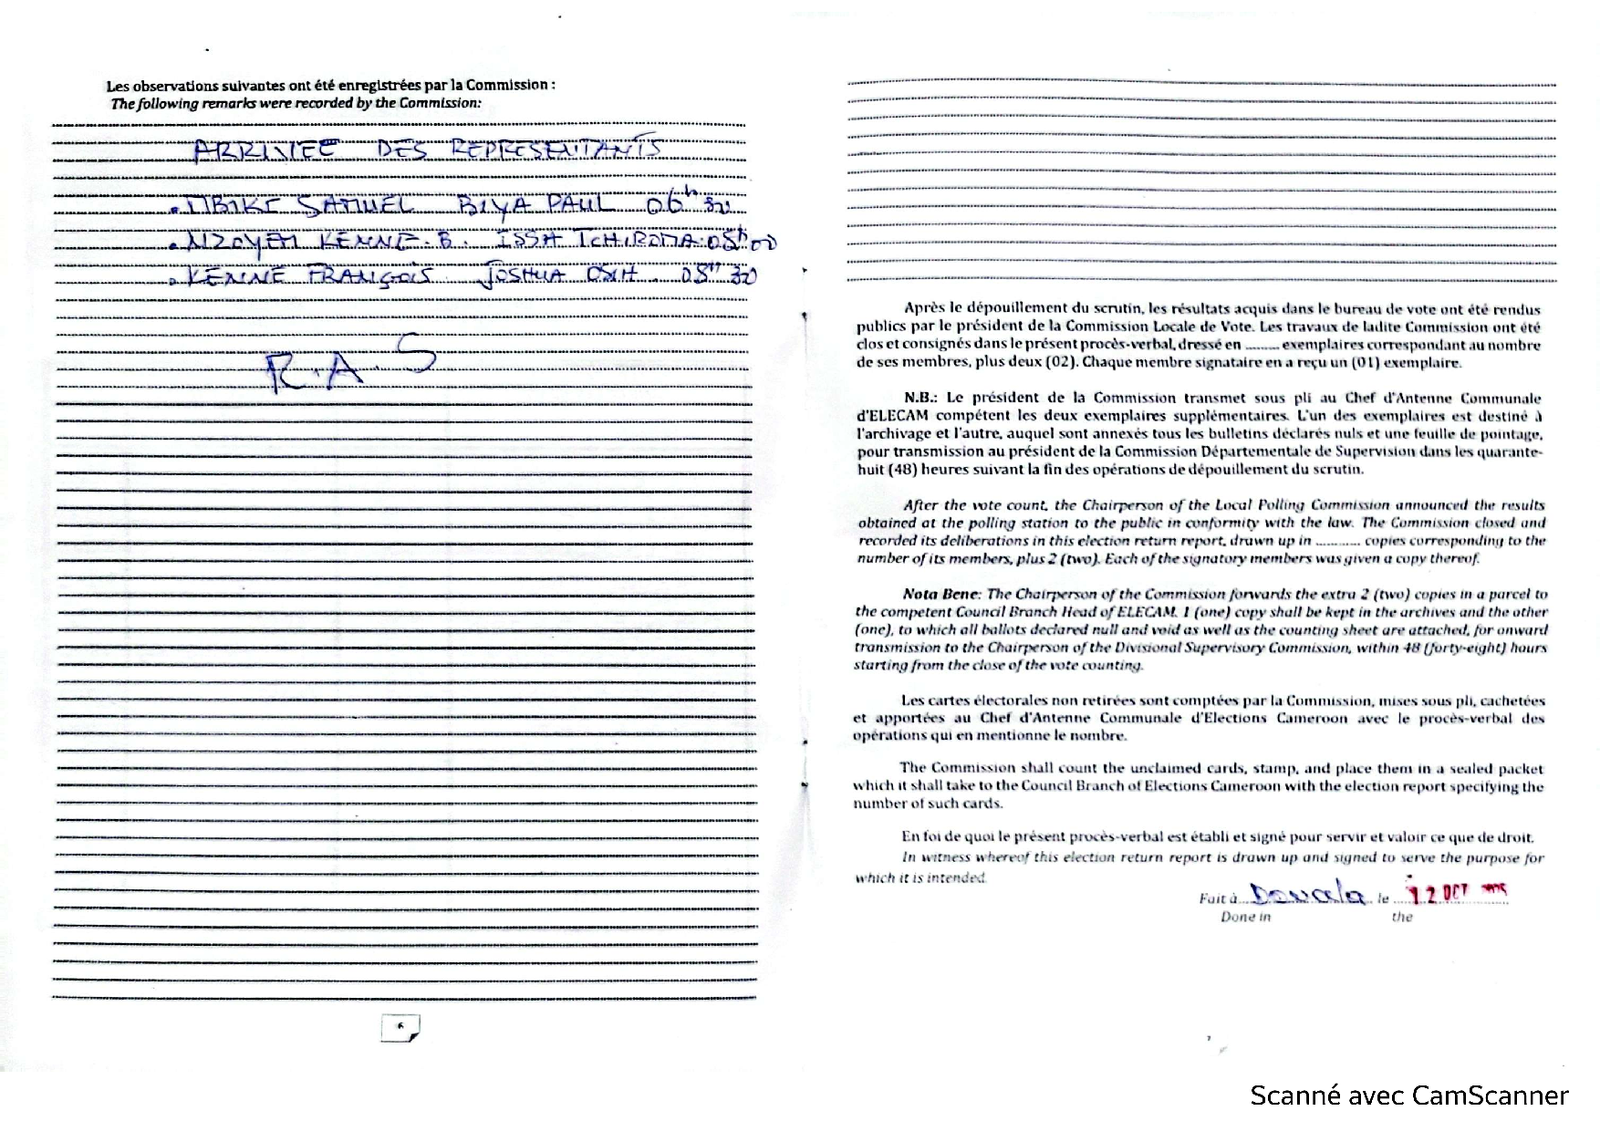 Les observations suivantes ont été enregistrées par la Commission :
The following remarks were recorded by the Commission:
ARRIVEE DES REPRESENTANTS
. MBIKE SAMUEL BIYA PAUL 06h 30
. NZOYEM KENNE. B. ISSA TCHIROMA 08h00
. KENNE FRANÇOIS JOSHUA OSIH 08h 30
R.A.S
6
Après le dépouillement du scrutin, les résultats acquis dans le bureau de vote ont été rendus
publics par le président de la Commission Locale de Vote. Les travaux de ladite Commission ont été
clos et consignés dans le présent procès-verbal, dressé en ......... exemplaires correspondant au nombre
de ses membres, plus deux (02). Chaque membre signataire en a reçu un (01) exemplaire.
N.B.: Le président de la Commission transmet sous pli au Chef d'Antenne Communale
d'ELECAM compétent les deux exemplaires supplémentaires. L'un des exemplaires est destiné à
l'archivage et l'autre, auquel sont annexés tous les bulletins déclarés nuls et une feuille de pointage,
pour transmission au président de la Commission Départementale de Supervision dans les quarante-
huit (48) heures suivant la fin des opérations de dépouillement du scrutin.
After the vote count, the Chairperson of the Local Polling Commission announced the results
obtained at the polling station to the public in conformity with the law. The Commission closed and
recorded its deliberations in this election return report, drawn up in ........... copies corresponding to the
number of its members, plus 2 (two). Each of the signatory members was given a copy thereof.
Nota Bene: The Chairperson of the Commission forwards the extra 2 (two) copies in a parcel to
the competent Council Branch Head of ELECAM. 1 (one) copy shall be kept in the archives and the other
(one), to which all ballots declared null and void as well as the counting sheet are attached, for onward
transmission to the Chairperson of the Divisional Supervisory Commission, within 48 (forty-eight) hours
starting from the close of the vote counting.
Les cartes électorales non retirées sont comptées par la Commission, mises sous pli, cachetées
et apportées au Chef d'Antenne Communale d'Elections Cameroon avec le procès-verbal des
opérations qui en mentionne le nombre.
The Commission shall count the unclaimed cards, stamp, and place them in a sealed packet
which it shall take to the Council Branch of Elections Cameroon with the election report specifying the
number of such cards.
En foi de quoi le présent procès-verbal est établi et signé pour servir et valoir ce que de droit.
In witness whereof this election return report is drawn up and signed to serve the purpose for
which it is intended.
Fait à Douala le 12 OCT
Done in the
7
Scanné avec CamScanner